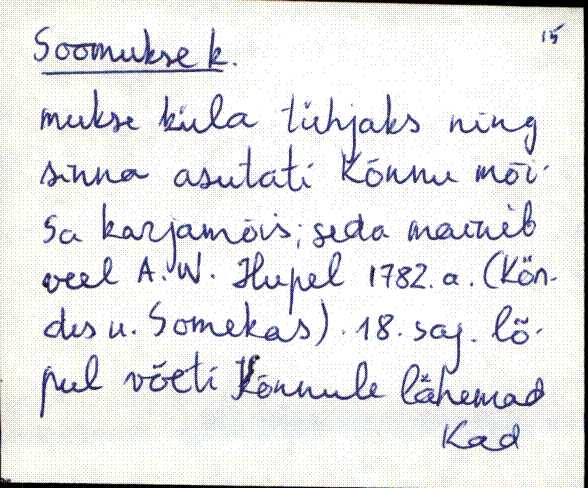 15
Soomukse k.
mukse küla tühjaks ning
sinna asutati Kõnnu mõi-
sa karjamõis; seda mainib
veel A. W. Hupel 1782. a. (Kön-
des u. Somekas). 18. saj. lõ-
pul võeti Kõnnule lähemad
Kad